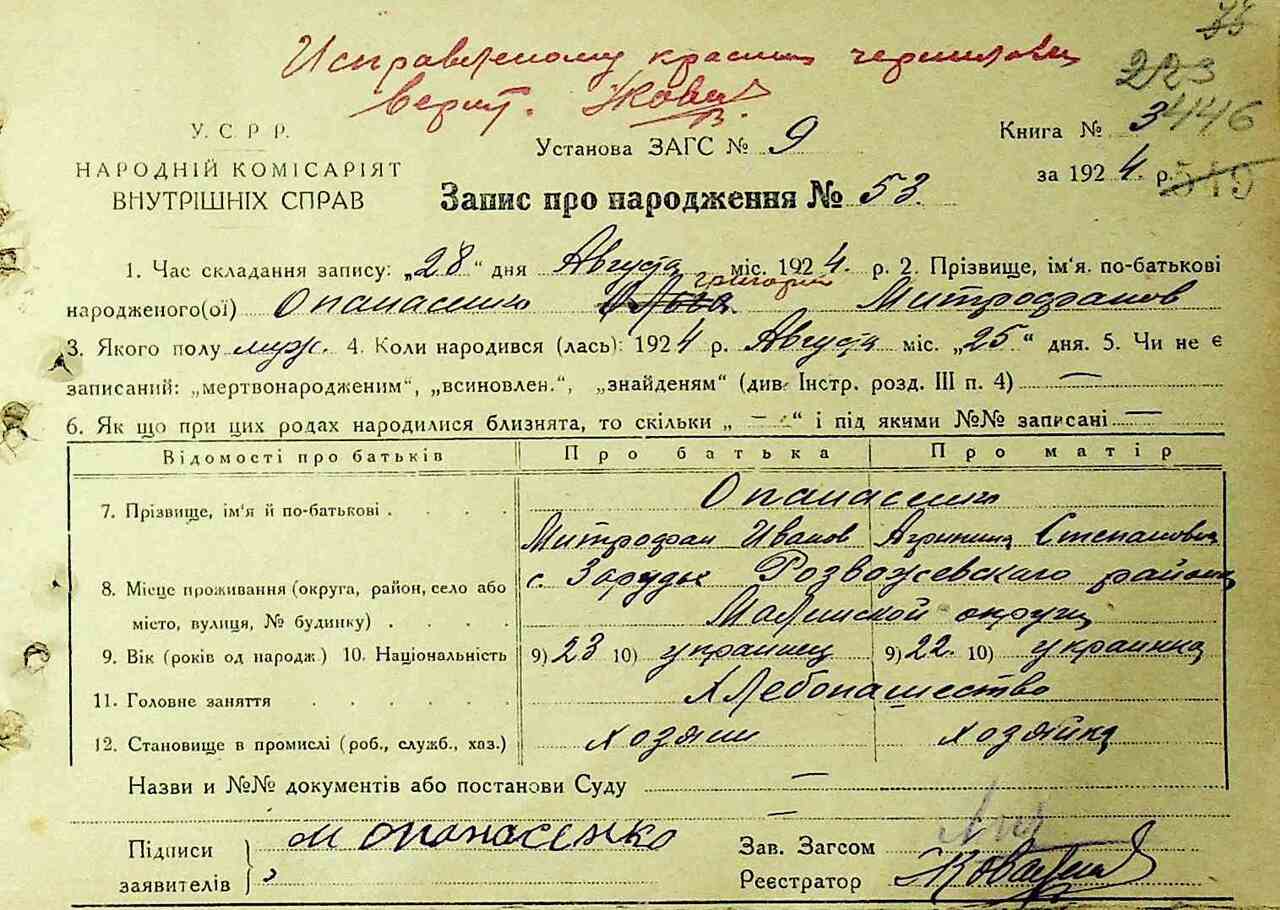 Исправленому красним чернилови
верит. Ков
223
446
519
У. С. Р. Р.
НАРОДНІЙ КОМІСАРІЯТ
ВНУТРІШНІХ СПРАВ
Установа ЗАГС № 9
Книга № 3
за 1924 р.
Запис про народження № 53.
1. Час складання запису: „28“ дня Августа міс. 1924. р. 2. Прізвище, ім'я. по-батькові
григорий
народженого(ої) Опанасенко Митрофанов
3. Якого полу муж. 4. Коли народився (лась): 1924 р. Августа міс. „25“ дня. 5. Чи не є
записаний: „мертвонародженим“, „всиновлен.“, „знайденям“ (див. Інстр. розд. III п. 4) —
6. Як що при цих родах народилися близнята, то скільки „ — “ і під якими №№ записані —
Відомості про батьків Про батька Про матір
7. Прізвище, ім'я й по-батькові . . . . Опанасенко
Митрофан Иванов Агрипина Степановна
8. Місце проживання (округа, район, село або
місто, вулиця, № будинку) . . . .
с. Зорудье Розвожевскаго района
Малинской округи
9. Вік (років од народж.) 10. Національність 9) 23 10) украинец 9) 22. 10) украинка
11. Головне заняття . . . . . Хлебопашество
12. Становище в промислі (роб., служб., хаз.) хозяин хозяйка
Назви и №№ документів або постанови Суду —
Підписи
заявителів
м опанасенко
Зав. Загсом
Реєстратор